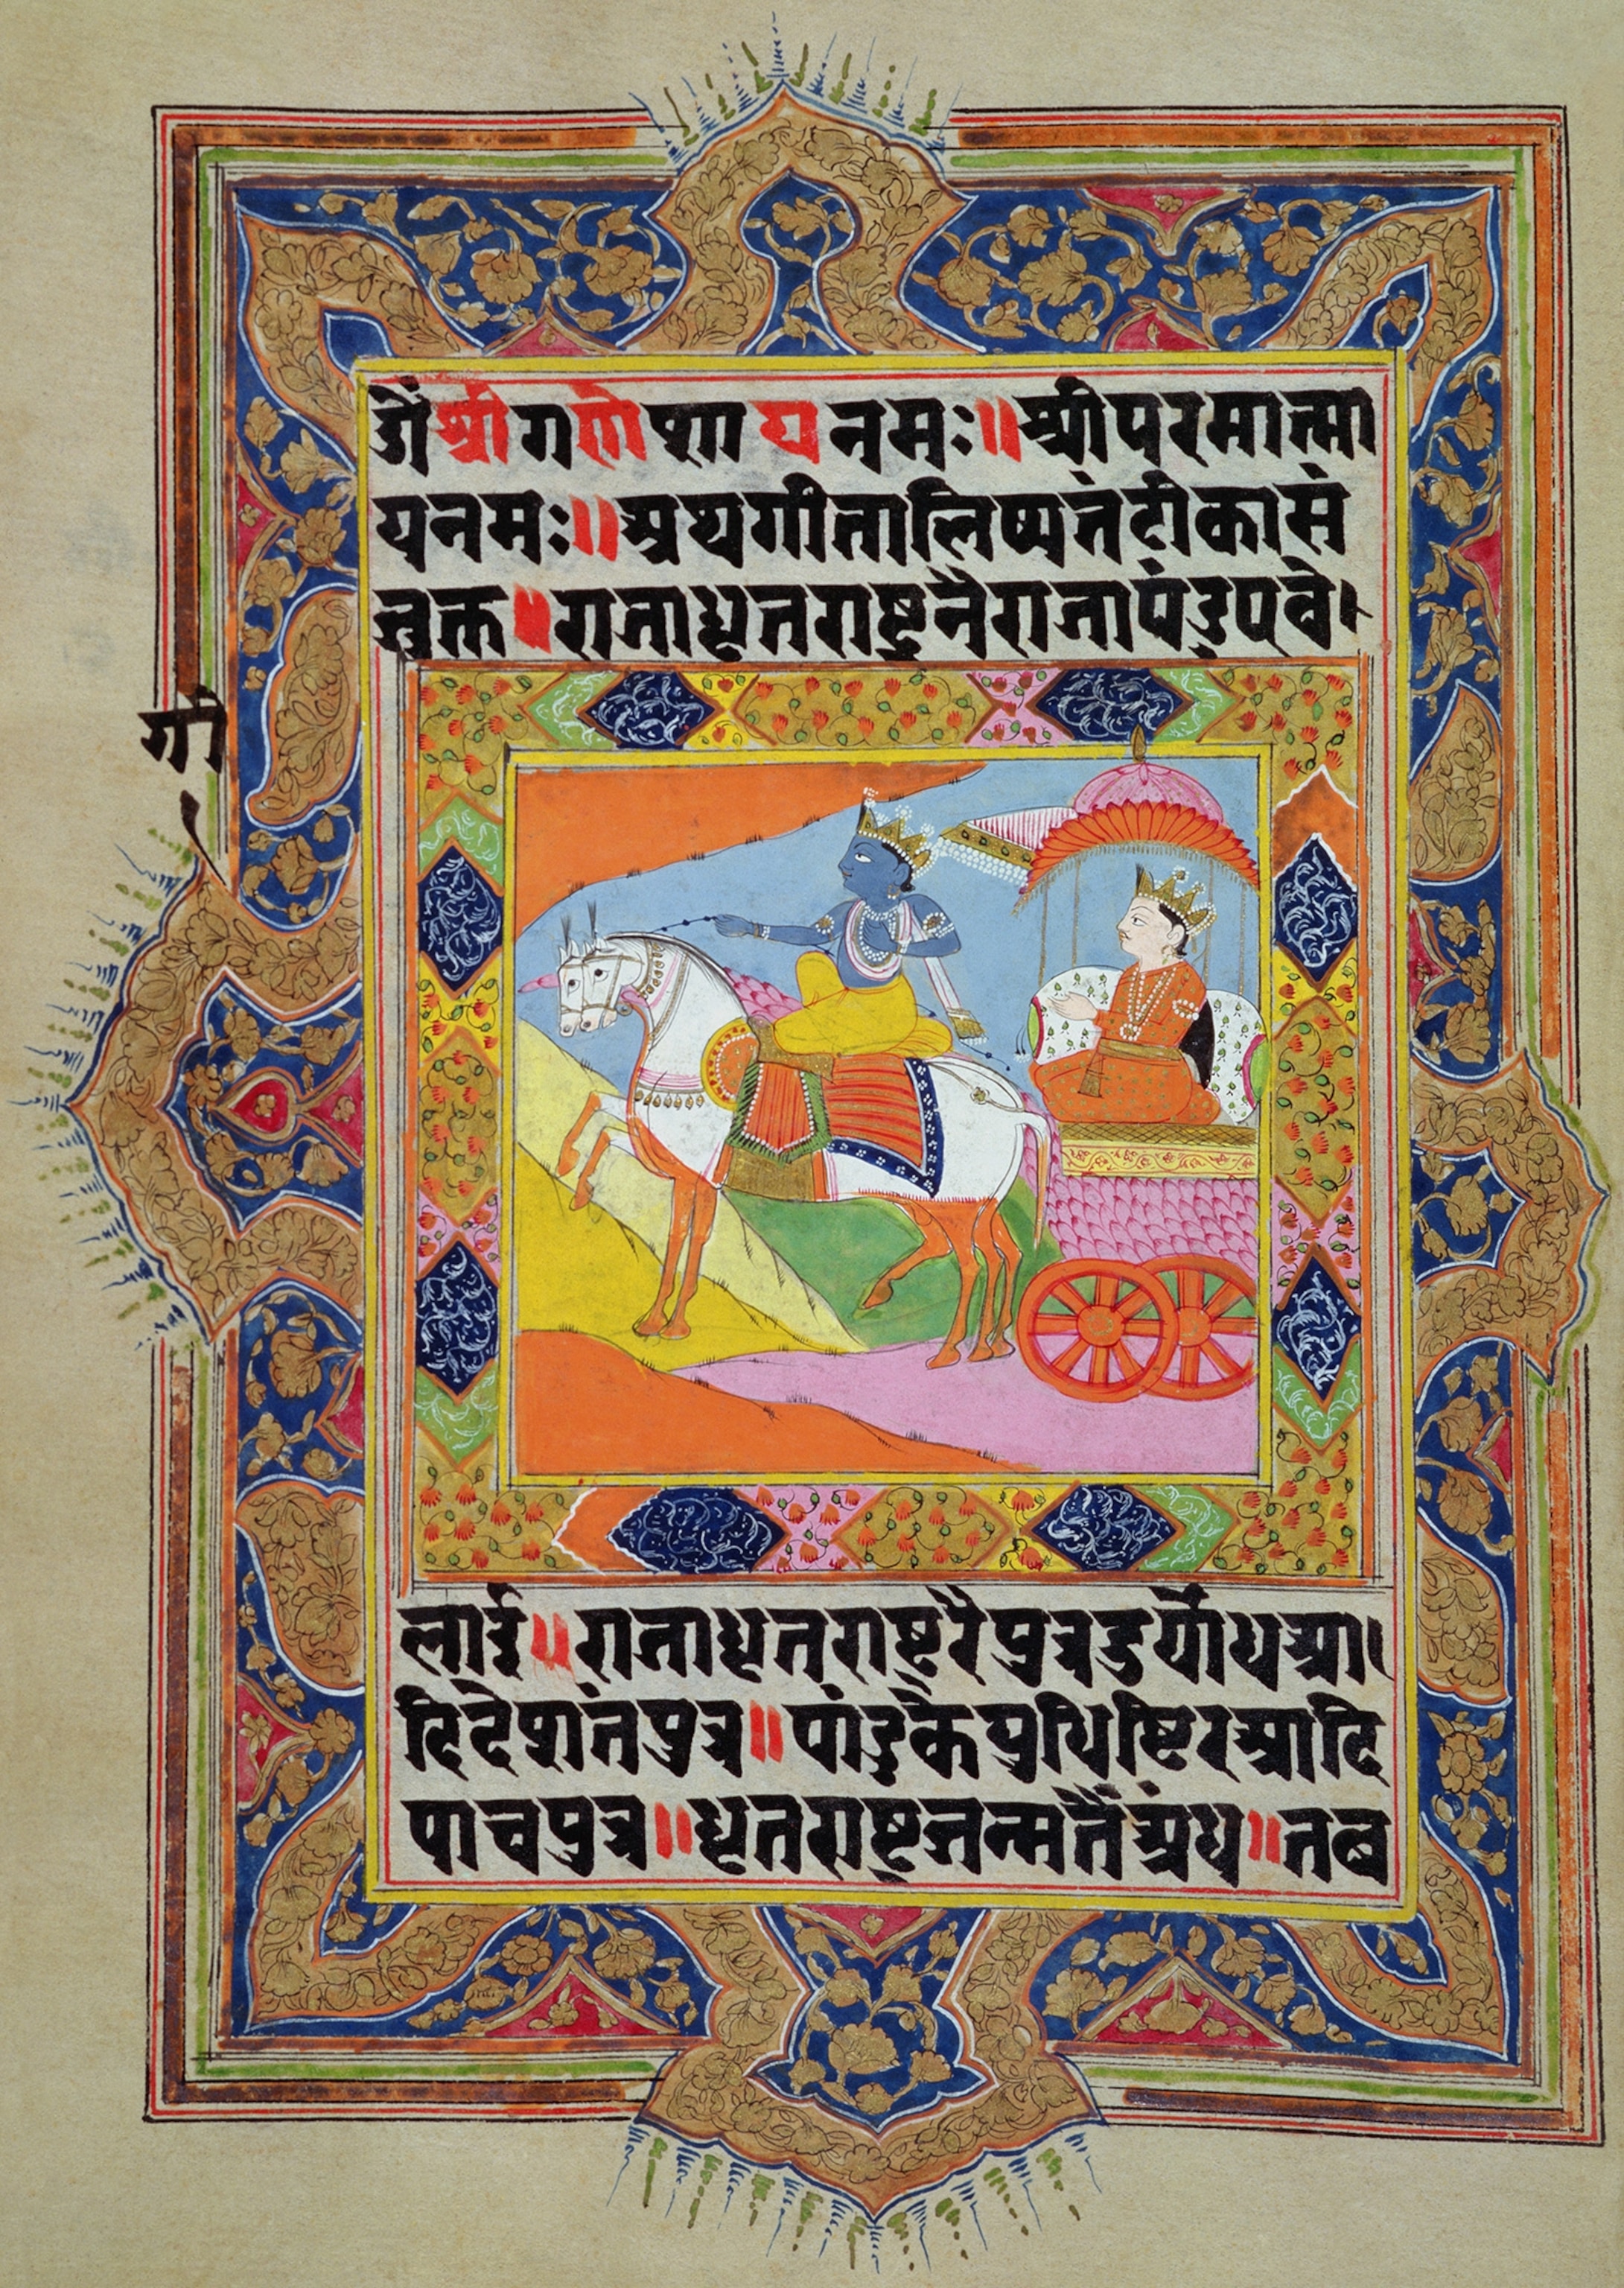 ओं श्री गणेशाय नमः॥ श्रीपरमात्मा
यनमः॥ अथगीतालिष्यतंटीकासं
राजाधृतराष्ट्रनैराजापंडुपवे।
गी
लाई॥ राजाधृतराष्ट्ररैपुत्रडुर्योधआ।
पुत्र॥ पांडुकेयुधिष्टिरआदि
पाचपुत्र॥ धृतराष्ट्रजन्मतैंअंध॥ तब